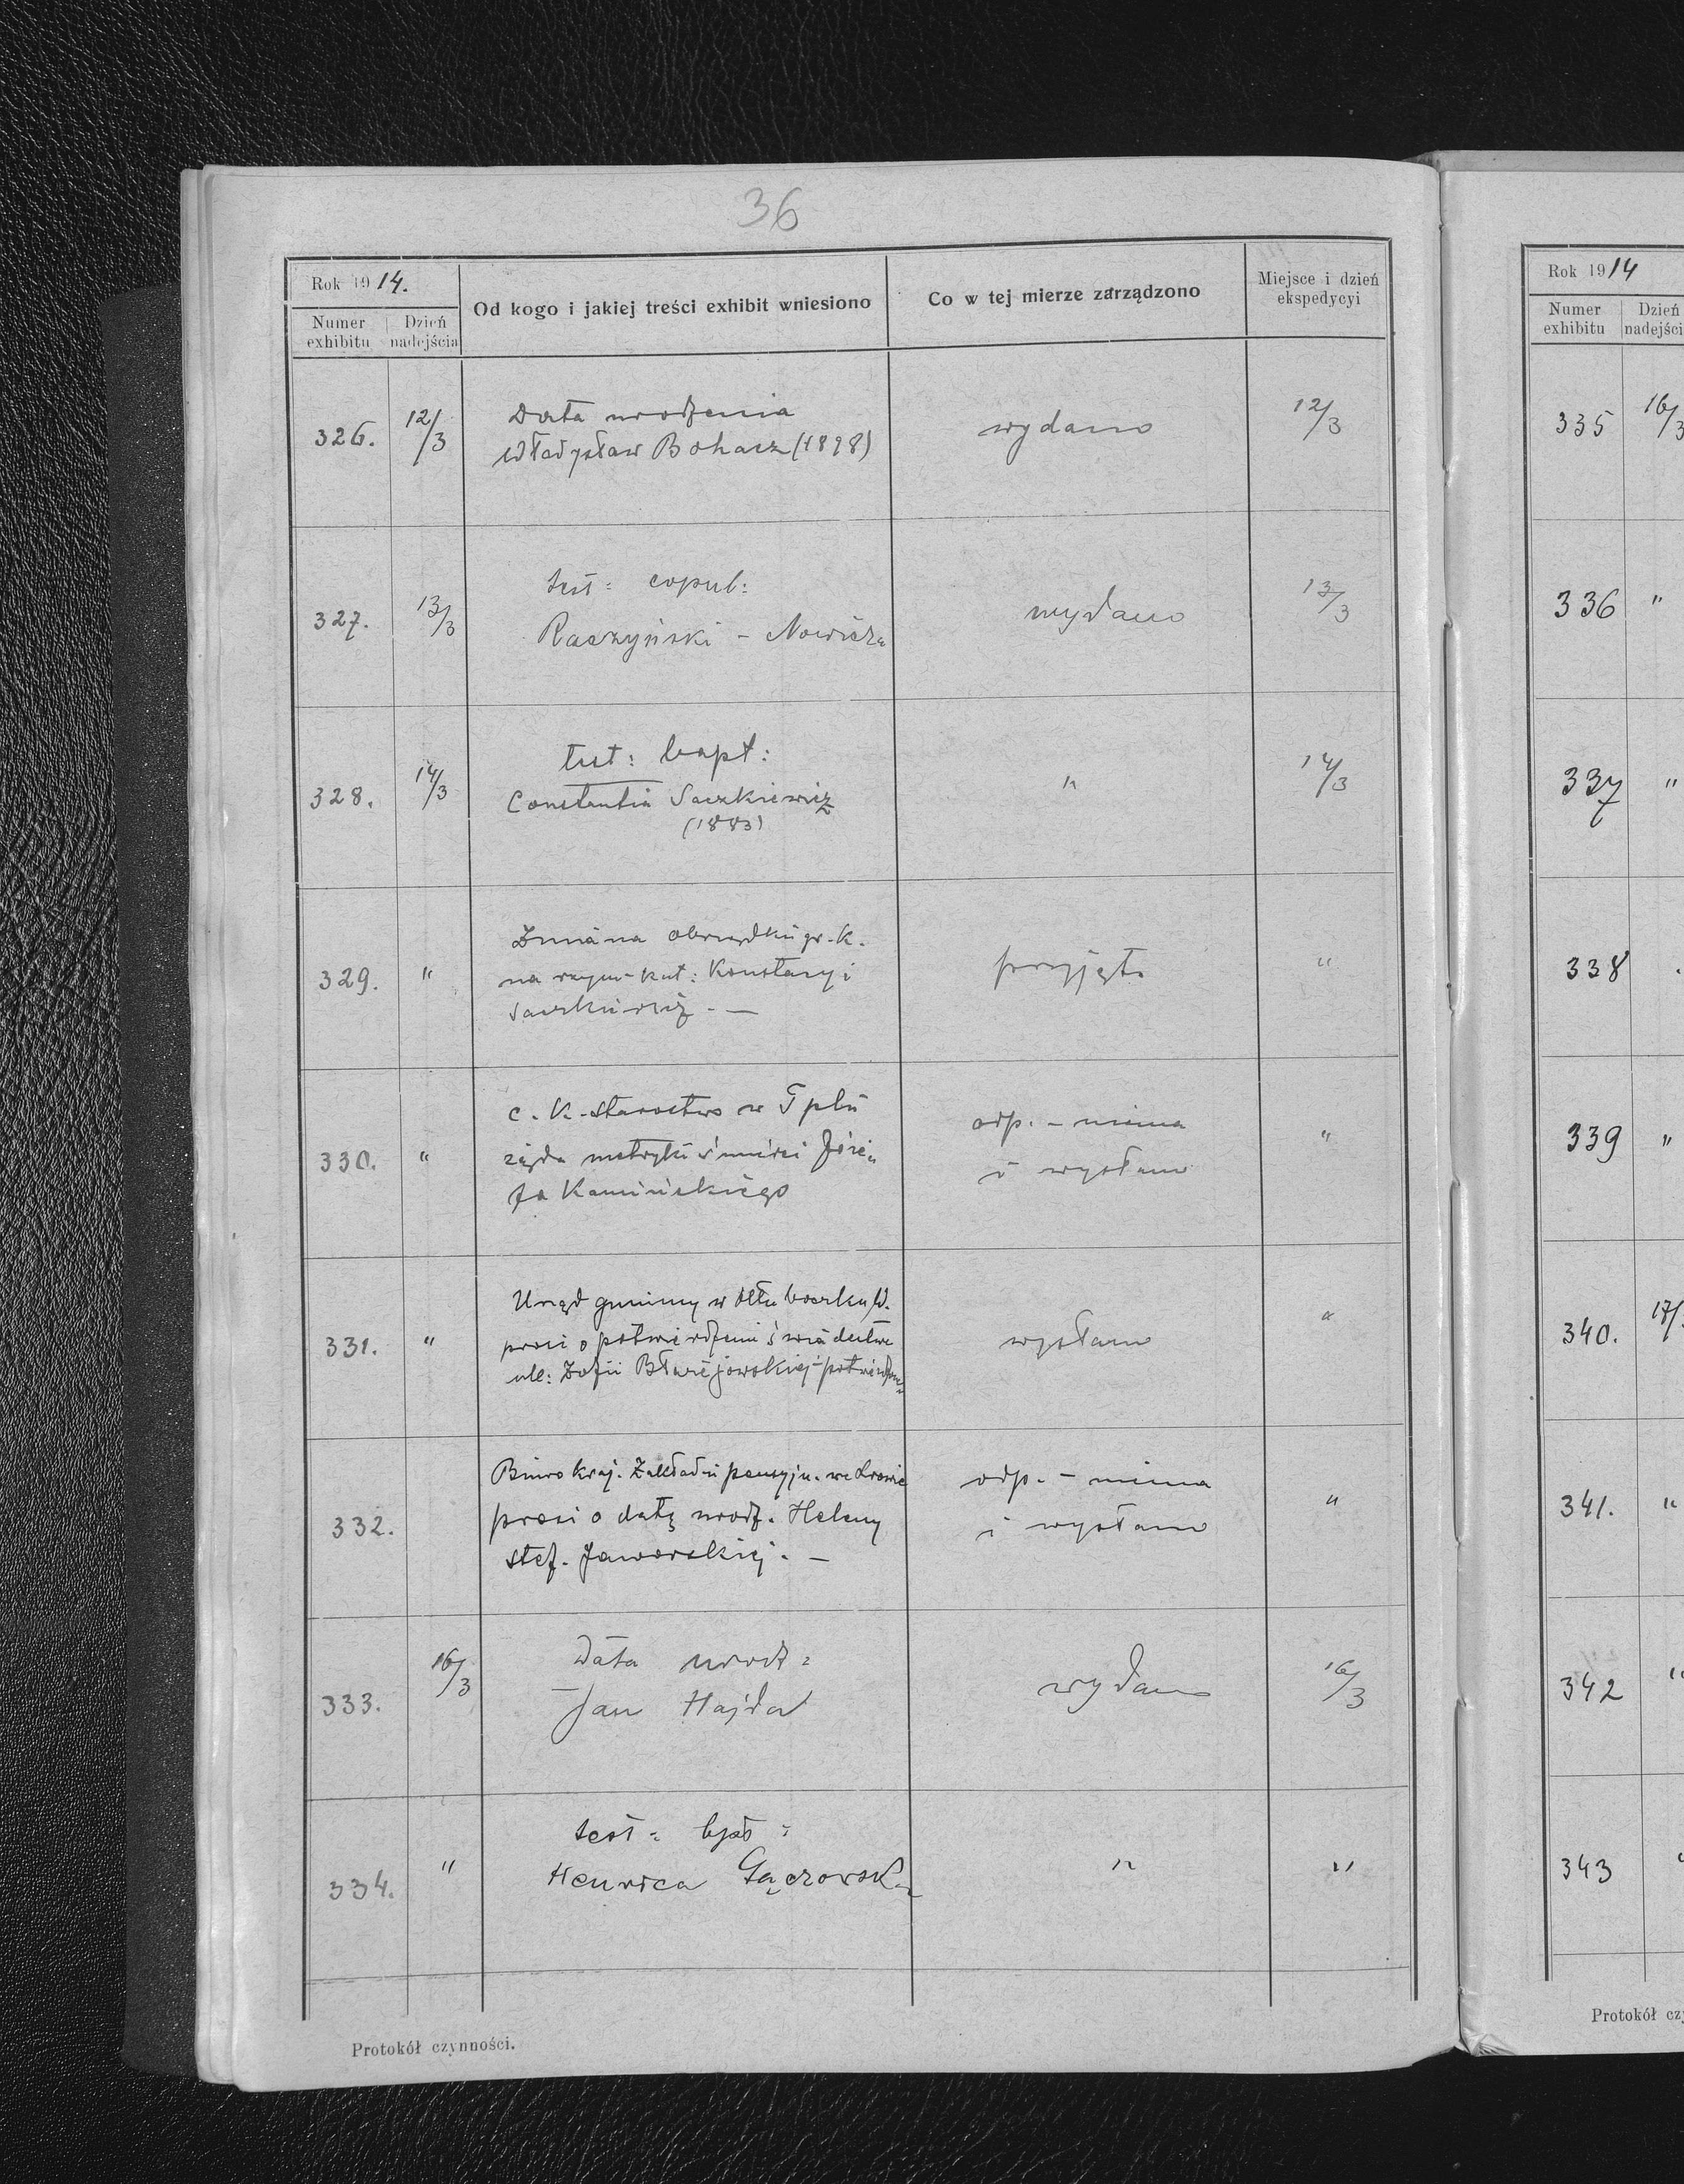 36
Rok 1914.
Numer exhibitu
Dzień nadejścia
Od kogo i jakiej treści exhibit wniesiono
Co w tej mierze zarządzono
Miejsce i dzień ekspedycyi
326. 12/3 Data urodzenia wydano 12/3
Władysław Bohacz (1898)
327. 13/3 test: copul: wydano 13/3
Raczyński - Nowicka
328. 14/3 test: bapt: " 14/3
Constantia Saczkiewicz
(1883)
329. " Zmiana obrządku gr.-k. przyjęto "
na rzym-kat: Konstancyi
Saczkiewicz. —
330. " c. k. starostwo w Tplu odp. - niema "
żąda metryki śmierci Józe
fa Kamińskiego i wysłano
331. " Urząd gminny w wysłano "
prosi o potwierdzenie świadectwa
ub: Zofii Błażejowskiej -
332. Biuro kraj. Zakładu pensyjn. we Lwowie odp. - niema "
prosi o datę urodz. Heleny i wysłano
Stef. Jaworskiej. —
333. 16/3 Data urodz: wydano 16/3
Jan Hajda
334. " test: bpt: " "
Henrica
Protokół czynności.
Rok 1914
Numer exhibitu
Dzień
335 16/3
336 "
337 "
338
339 "
340. 17/
341. "
342 "
343 "
Protokół